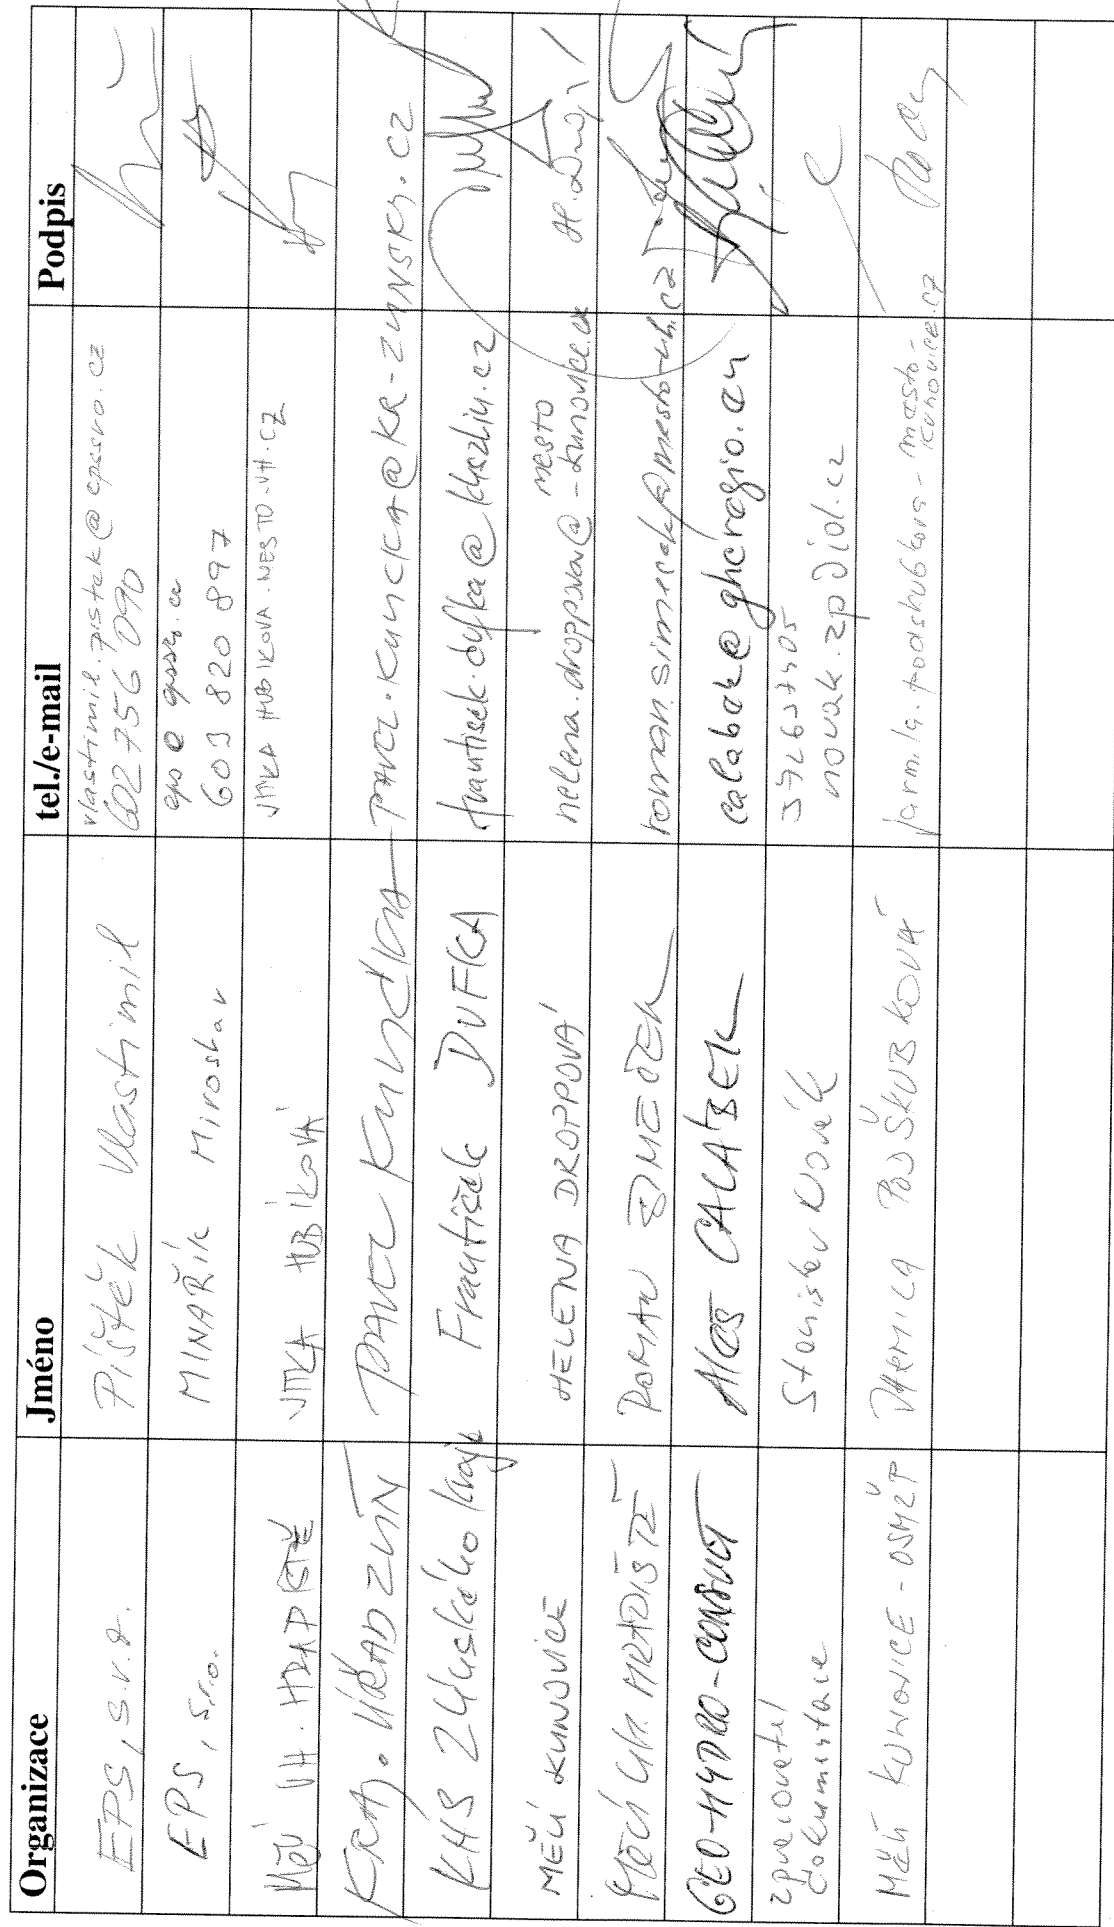 Organizace Jméno tel./e-mail Podpis
EPS, s.r.o. Píštěk Vlastimil vlastimil.pistek@epssro.cz
602 756 090
EPS, s.r.o. MINAŘÍK Miroslav eps@epssro.cz
603 820 897
MěÚ UH. HRADIŠTĚ JITKA HUBÍKOVÁ JITKA HUBIKOVA.MESTO-UH.CZ
KRAJ. ÚŘAD ZLÍN PAVEL KUNČICKA PAVEL.KUNCICKA@KR-ZLINSKY.CZ
KHS Zlínského kraje František DUFKA frantisek.dufka@khszlin.cz
MĚÚ KUNOVICE HELENA DROPPOVÁ helena.droppova@mesto
-kunovice.cz
MĚÚ UH. HRADIŠTĚ ROMAN ŠIMEČEK roman.simecek@mesto-uh.cz
GEO-HYDRO-CONSULT ALEŠ CALÁBEK
zpracovatel
dokumentace Stanislav Novák
MěÚ KUNOVICE - OSMŽP JARMILA PODŠKUBKOVÁ jarmila.podskubkova-mesto-
kunovice.cz